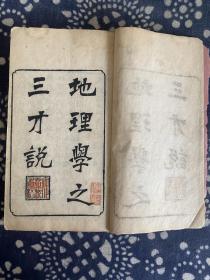 地理學之
三才說